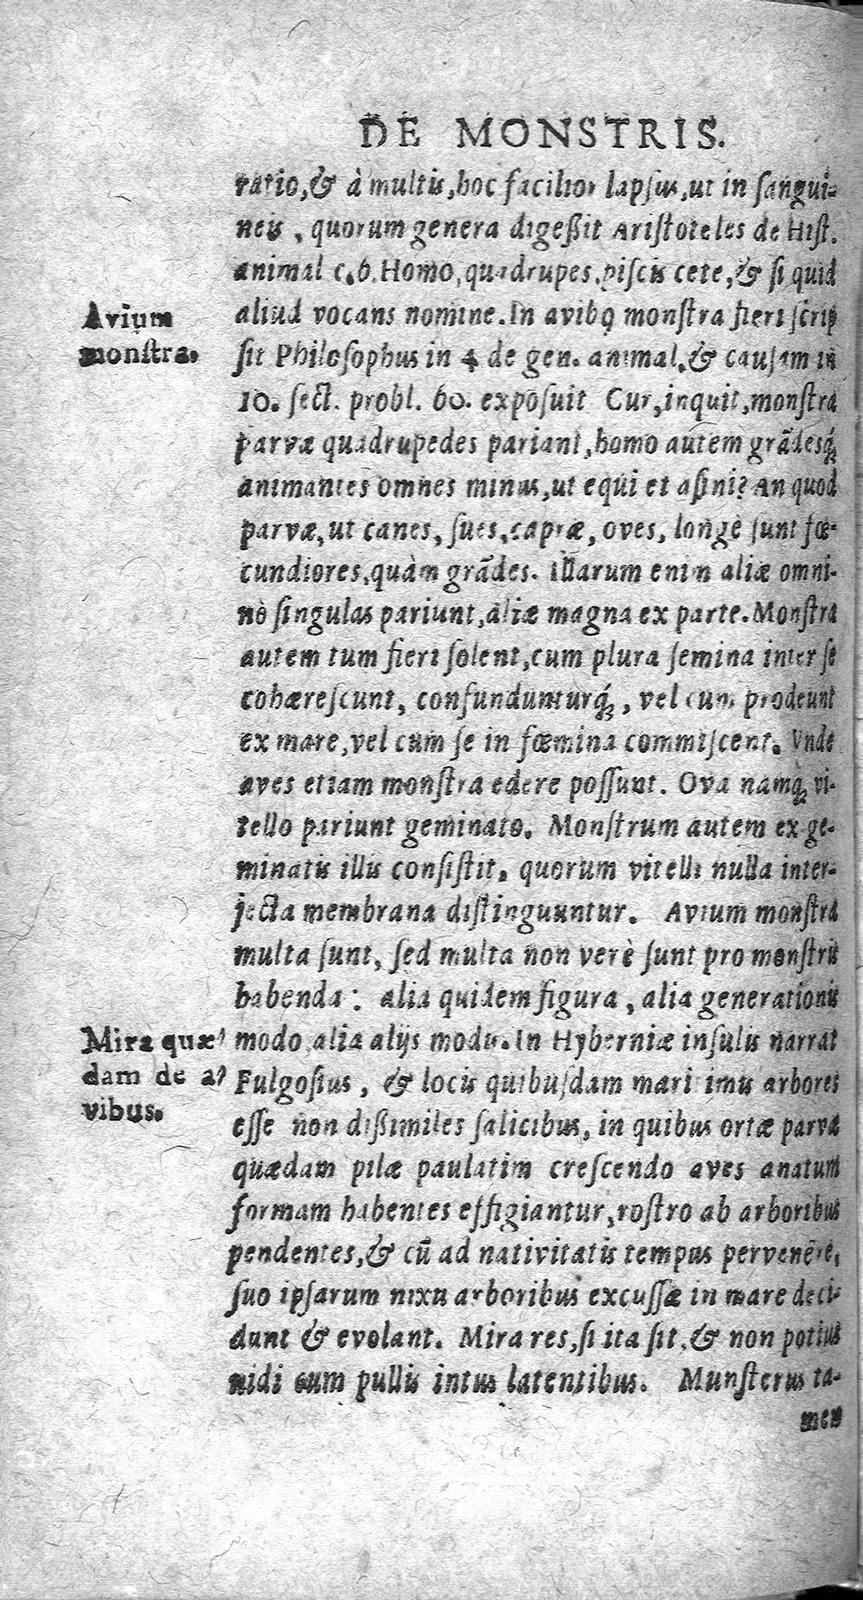 DE MONSTRIS.
ratio, & à multis, hoc facilior lapsus, ut in sangui-
neis, quorum genera digeßit Aristoteles de Hist.
animal c. 6. Homo, quadrupes, piscis cete, & si quid
aliud vocans nomine. In avibꝗ monstra fieri scrip
Avium
monstra.
sit Philosophus in 4 de gen. animal. & causam in
10. sect. probl. 60. exposuit Cur, inquit, monstra
parvæ quadrupedes pariant, homo autem grãdesq́;
animantes omnes minus, ut equi et asini? An quod
parvæ, ut canes, sues, capræ, oves, longè sunt fœ-
cundiores, quàm grãdes. Illarum enim aliæ omni-
nò singulas pariunt, aliæ magna ex parte. Monstra
autem tum fieri solent, cum plura semina inter se
cohærescunt, confundunturq́;, vel cum prodeunt
ex mare, vel cum se in fœmina commiscent. Vnde
aves etiam monstra edere possunt. Ova namq; vi-
tello pariunt geminato. Monstrum autem ex ge-
minatis illis consistit, quorum vitelli nulla inter-
jecta membrana distinguuntur. Avium monstra
multa sunt, sed multa non verè sunt pro monstris
habenda: alia quidem figura, alia generationis
Mira quæ-
dam de a-
vibus.
modo alia alijs modis. In Hyberniæ insulis narrat
Fulgosius, & locis quibusdam maritimis arbores
esse non dißimiles salicibus, in quibus ortæ parvæ
quædam pilæ paulatim crescendo aves anatum
formam habentes effigiantur, rostro ab arboribus
pendentes, & cũ ad nativitatis tempus pervenẽre,
suo ipsarum nixu arboribus excussæ in mare deci-
dunt & evolant. Mira res, si ita sit, & non potius
nidi cum pullis intus latentibus. Munsterus ta-
men